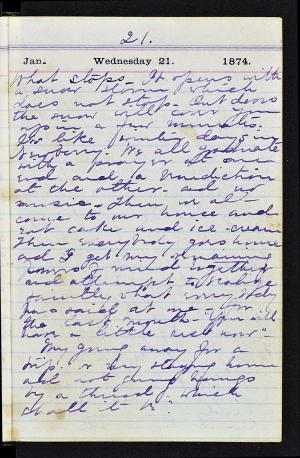 21.
Jan. Wednesday 21. 1874.
What stops - It opens with
a snow storm which
does not stop. Out doors
the snow will cover you
up in a few minutes.
Its like winter days in
We all graduate
with a prayer at one
end and a benediction
at the other - and no
music. Then, we all
come to our house and
eat cake and ice-cream
Then everybody goes home
and I get my remaining
mind together
and attempt to realize
faintly what everybody
has said at me for
the last month - "You will
have a little rest now" -
My going away for a
trip. & my staying home
and not
by a thread, which
shall it be?